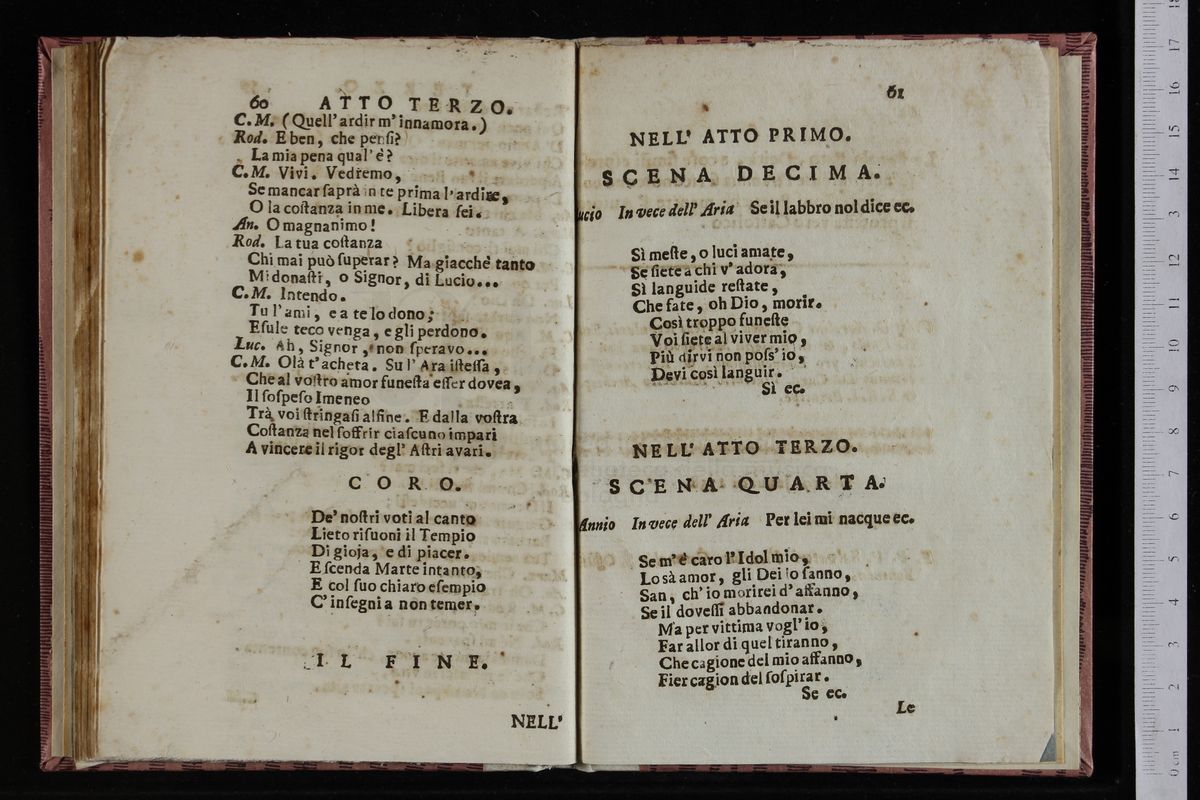 60 ATTO TERZO.
C.M. (Quell' ardir m' innamora.)
Rod. E ben, che penſi?
La mia pena qual' è?
C.M. Vivi. Vedremo,
Se mancar ſaprà in te prima l' ardire,
O la coſtanza in me. Libera ſei.
An. O magnanimo!
Rod. La tua coſtanza
Chi mai può ſuperar? Ma giacchè tanto
Mi donaſti, o Signor, di Lucio...
C.M. Intendo.
Tu l' ami, e a te lo dono;
Eſule teco venga, e gli perdono.
Luc. Ah, Signor, non ſperavo...
C.M. Olà t' acheta. Su l' Ara iſteſſa,
Che al voſtro amor funeſta eſſer dovea,
Il ſoſpeſo Imeneo
Trà voi ſtringaſi alfine. E dalla voſtra
Coſtanza nel ſoffrir ciaſcuno impari
A vincere il rigor degl' Aſtri avari.
CORO.
De' noſtri voti al canto
Lieto riſuoni il Tempio
Di gioja, e di piacer.
E ſcenda Marte intanto,
E col ſuo chiaro eſempio
C' inſegni a non temer.
IL FINE.
NELL'
61
NELL' ATTO PRIMO.
SCENA DECIMA.
ucio In vece dell' Aria Se il labbro nol dice ec.
Sì meſte, o luci amate,
Se ſiete a chi v' adora,
Sì languide reſtate,
Che fate, oh Dio, morir.
Così troppo funeſte
Voi ſiete al viver mio,
Più dirvi non poſs' io,
Devi così languir.
Sì ec.
NELL' ATTO TERZO.
SCENA QUARTA.
Annio In vece dell' Aria Per lei mi nacque ec.
Se m' è caro l' Idol mio,
Lo sà amor, gli Dei lo ſanno,
San, ch' io morirei d' affanno,
Se il doveſſi abbandonar.
Ma per vittima vogl' io,
Far allor di quel tiranno,
Che cagione del mio affanno,
Fier cagion del ſoſpirar.
Se ec.
Le
0 cm 1 2 3 4 5 6 7 8 9 10 11 12 13 14 15 16 17